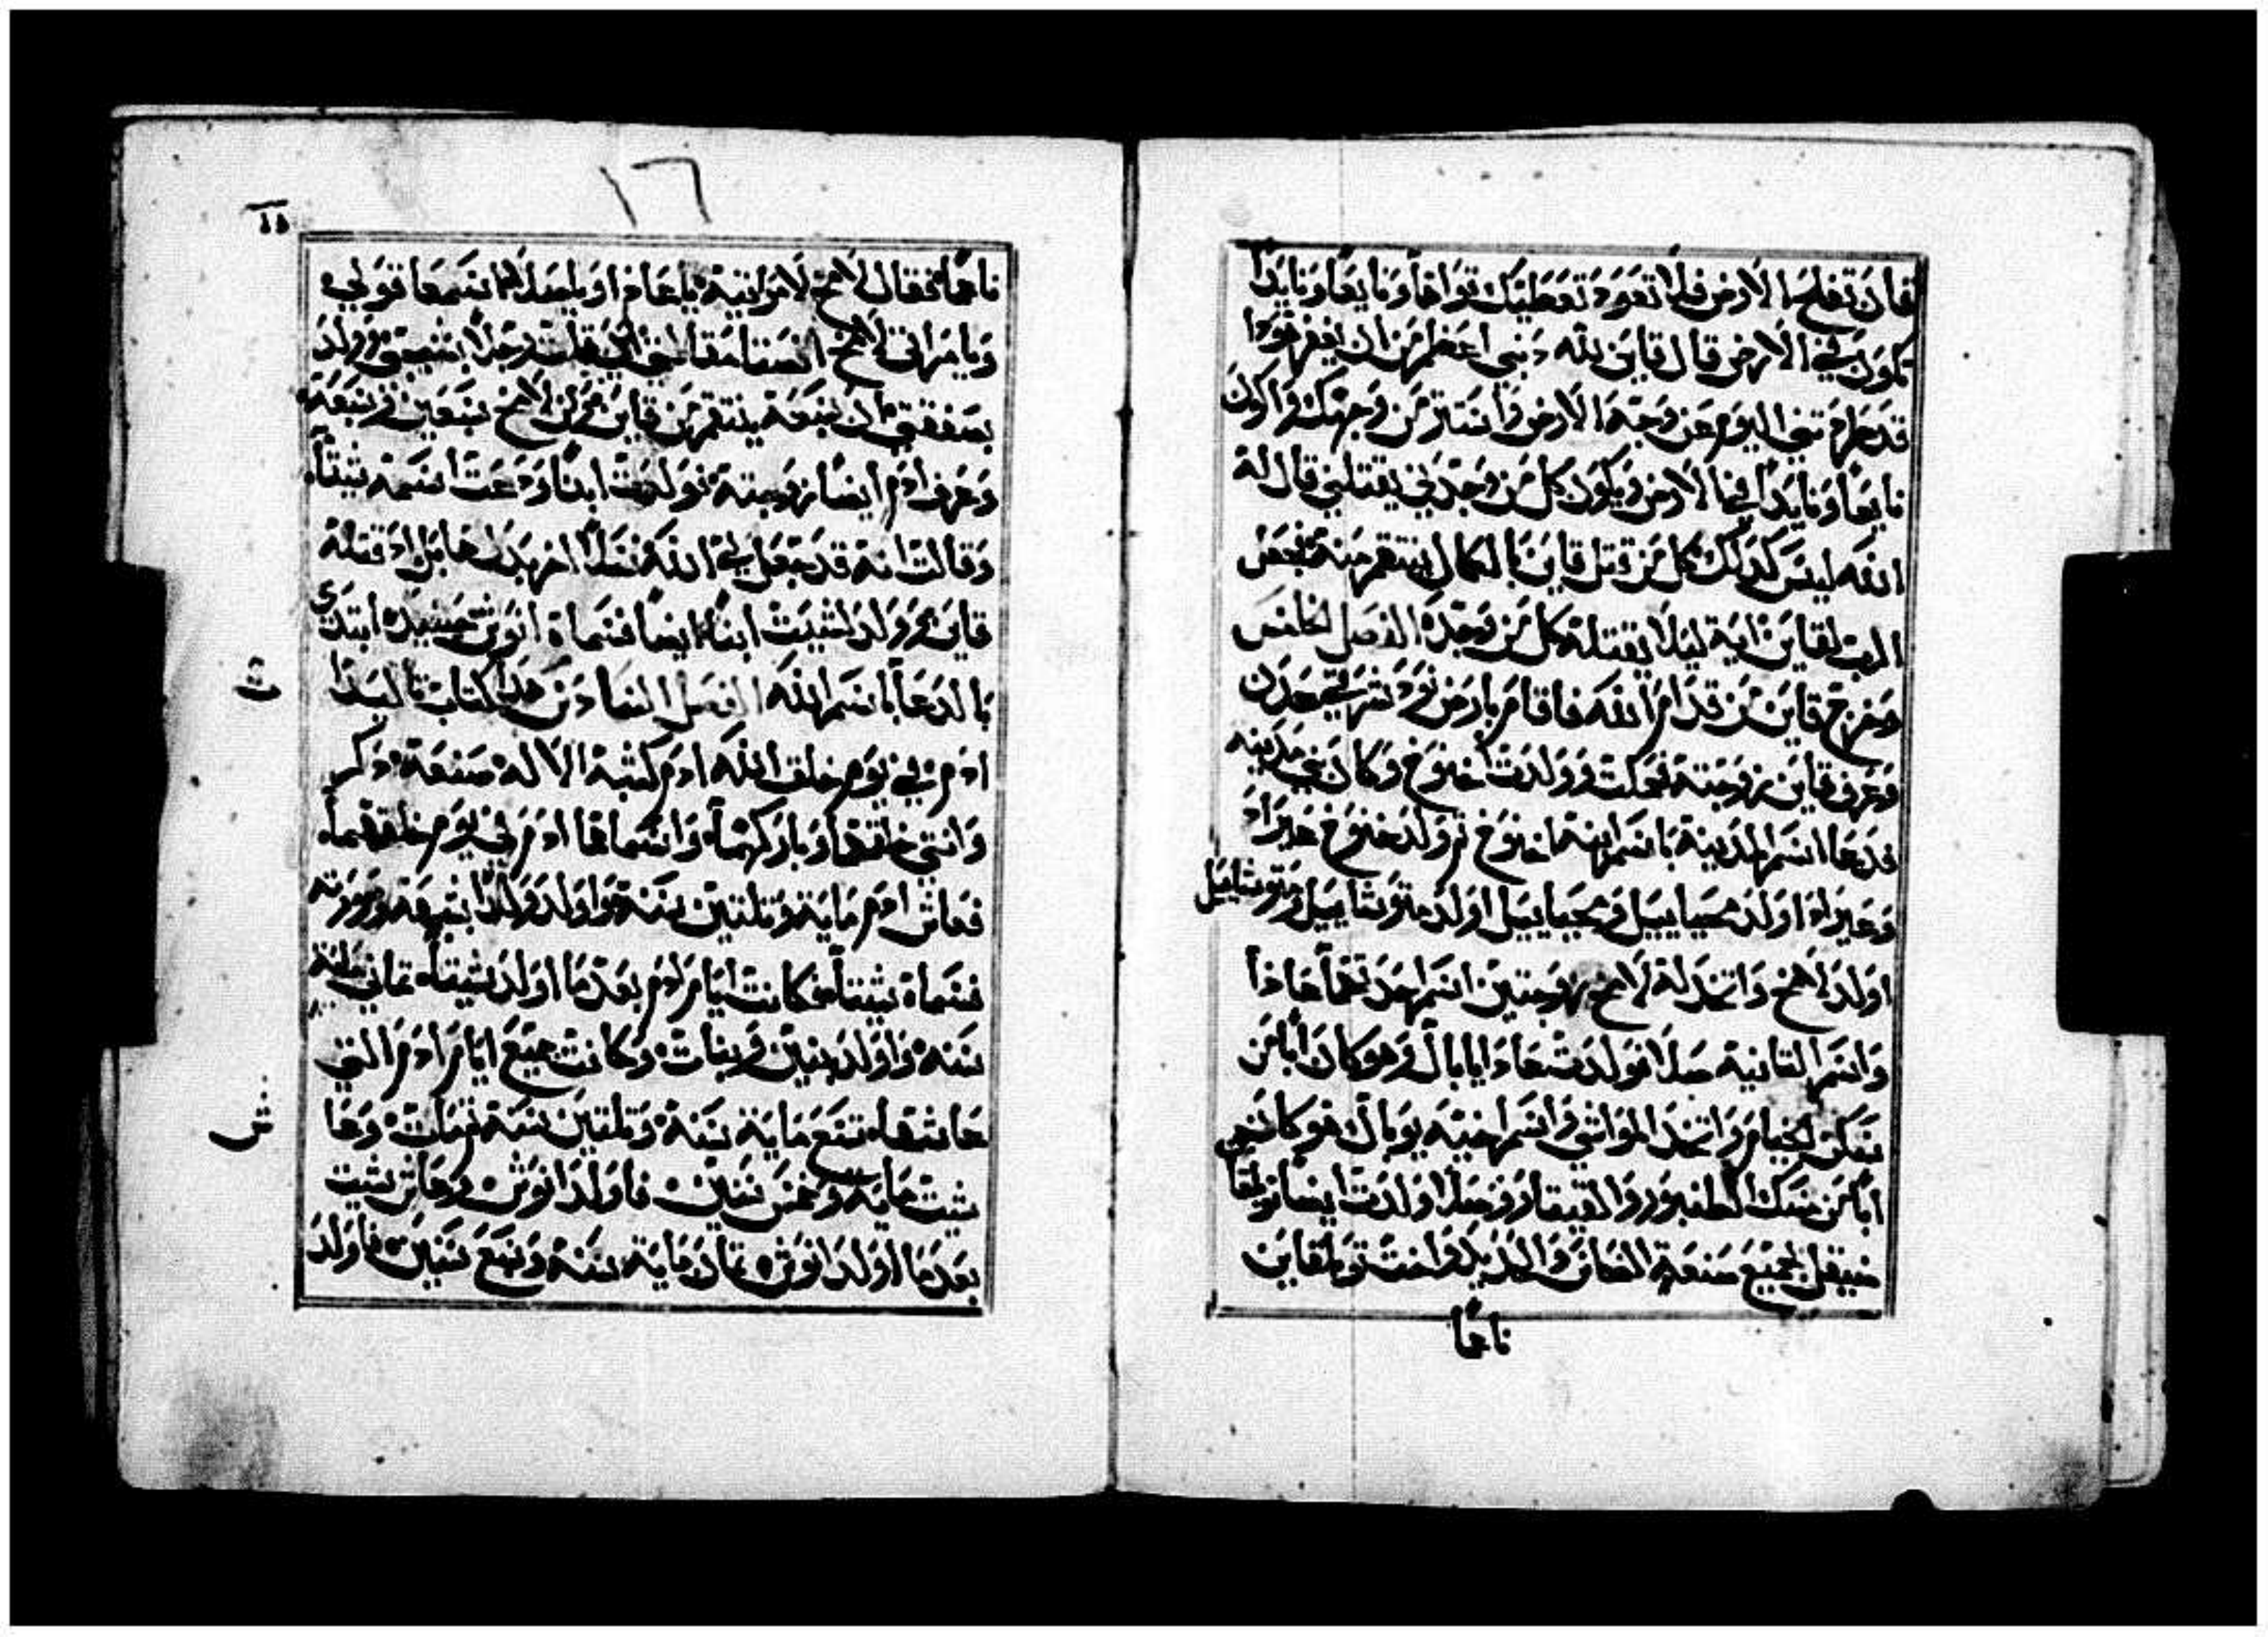 فان تفلح الارض فلا تعود تعطيك قواها وتايها ونايدا
تكون في الارض قال قاين لله دنبي اعظم من ان يغفر هودا
قد طرحتني اليوم عن وجه الارض واستتر من وجهك واكون
تايها ونايدا في الارض ويكون كل من وجدني يقتلني قال له
الله ليس كدلك كل من قتل قاين بالكمال ينتقم منه فجعل
الرب لقاين اية ليلا يقتله كل من وجده الفصل الخامس
وخرج قاين من قدام الله فاقام بارض نود شرقي عدن
وعرف قاين زوجته فحبلت وولدت اخنوخ وكان يبني مدينه
فدعا اسم المدينة باسم ابنه اخنوخ تم ولد خنوخ عيراد
وعيراد اولد محياييل ومحياييل اولد متوشاييل ومتوشاييل
اولد لامخ واتخد له لامخ زوجتين اسم احدتهما عادا
واسم التانية صلا فولدت عادا يابال وهو كان ابا من
سكن الخيام واتخد المواشي واسم اخيه يوبال هو كان
ابا من مسك الطنبور والقيتار وصلا ولدت ايضا توبلقا
صيقل جميع صنعة النحاس والحديد واخت توبلقاين
ناعما
١٦
١٥
ناعما فقال لامخ لامراتيه يا عادا ويا صلا اسمعا قولي
ويا مراتي لامخ انصتا مقالتي اني قتلت رجلا بشجتي وولد
بصفقتي ان سبعة ينتقم من قاين فمن لامخ سبعين وسبعه
وعرف ادم ايضا زوجته فولدت ابنا ودعت اسمه شيتا
وقالت انه قد جعل لي الله نسلا اخر بدل هابل اد قتله
قاين وولد لشيت ابنا ايضا فسماه انوش حينيد ابتدي
بالدعا باسم الله الفصل السادس هدا كتاب تاليد
ادم في يوم خلق الله ادم كشبه الاله صنعه دكر
وانتي خلقهما وباركهما واسماهما ادم في يوم خلقهما
فعاش ادم ماية وتلتين سنه واولد ولدا بشبهه وصورته
فسماه شيتا فكانت ايام ادم بعد ما اولد شيتا تماني ماية
سنه واولد بنين وبنات وكانت جميع ايام ادم التي
عاشها تسع ماية سنة وتلتين سنه فمات وعا
ش
شيت ماية وخمس سنين فاولد انوش وعاش شيت
بعد ما اولد انوش تمان ماية سنه وسبع سنين فاولد